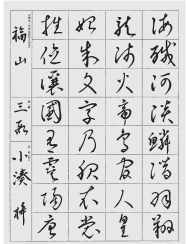 海鹹河淡鱗潛羽翔
龍師火帝鳥官人皇
始制文字乃服衣裳
推位讓國有虞陶唐
福山
小湊